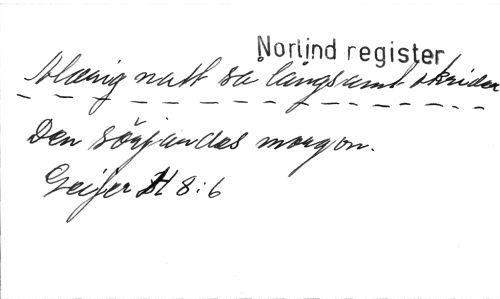 Norlind register
natt så långsamt skrider
Den sörjandes morgon.
Geijer H 8:6